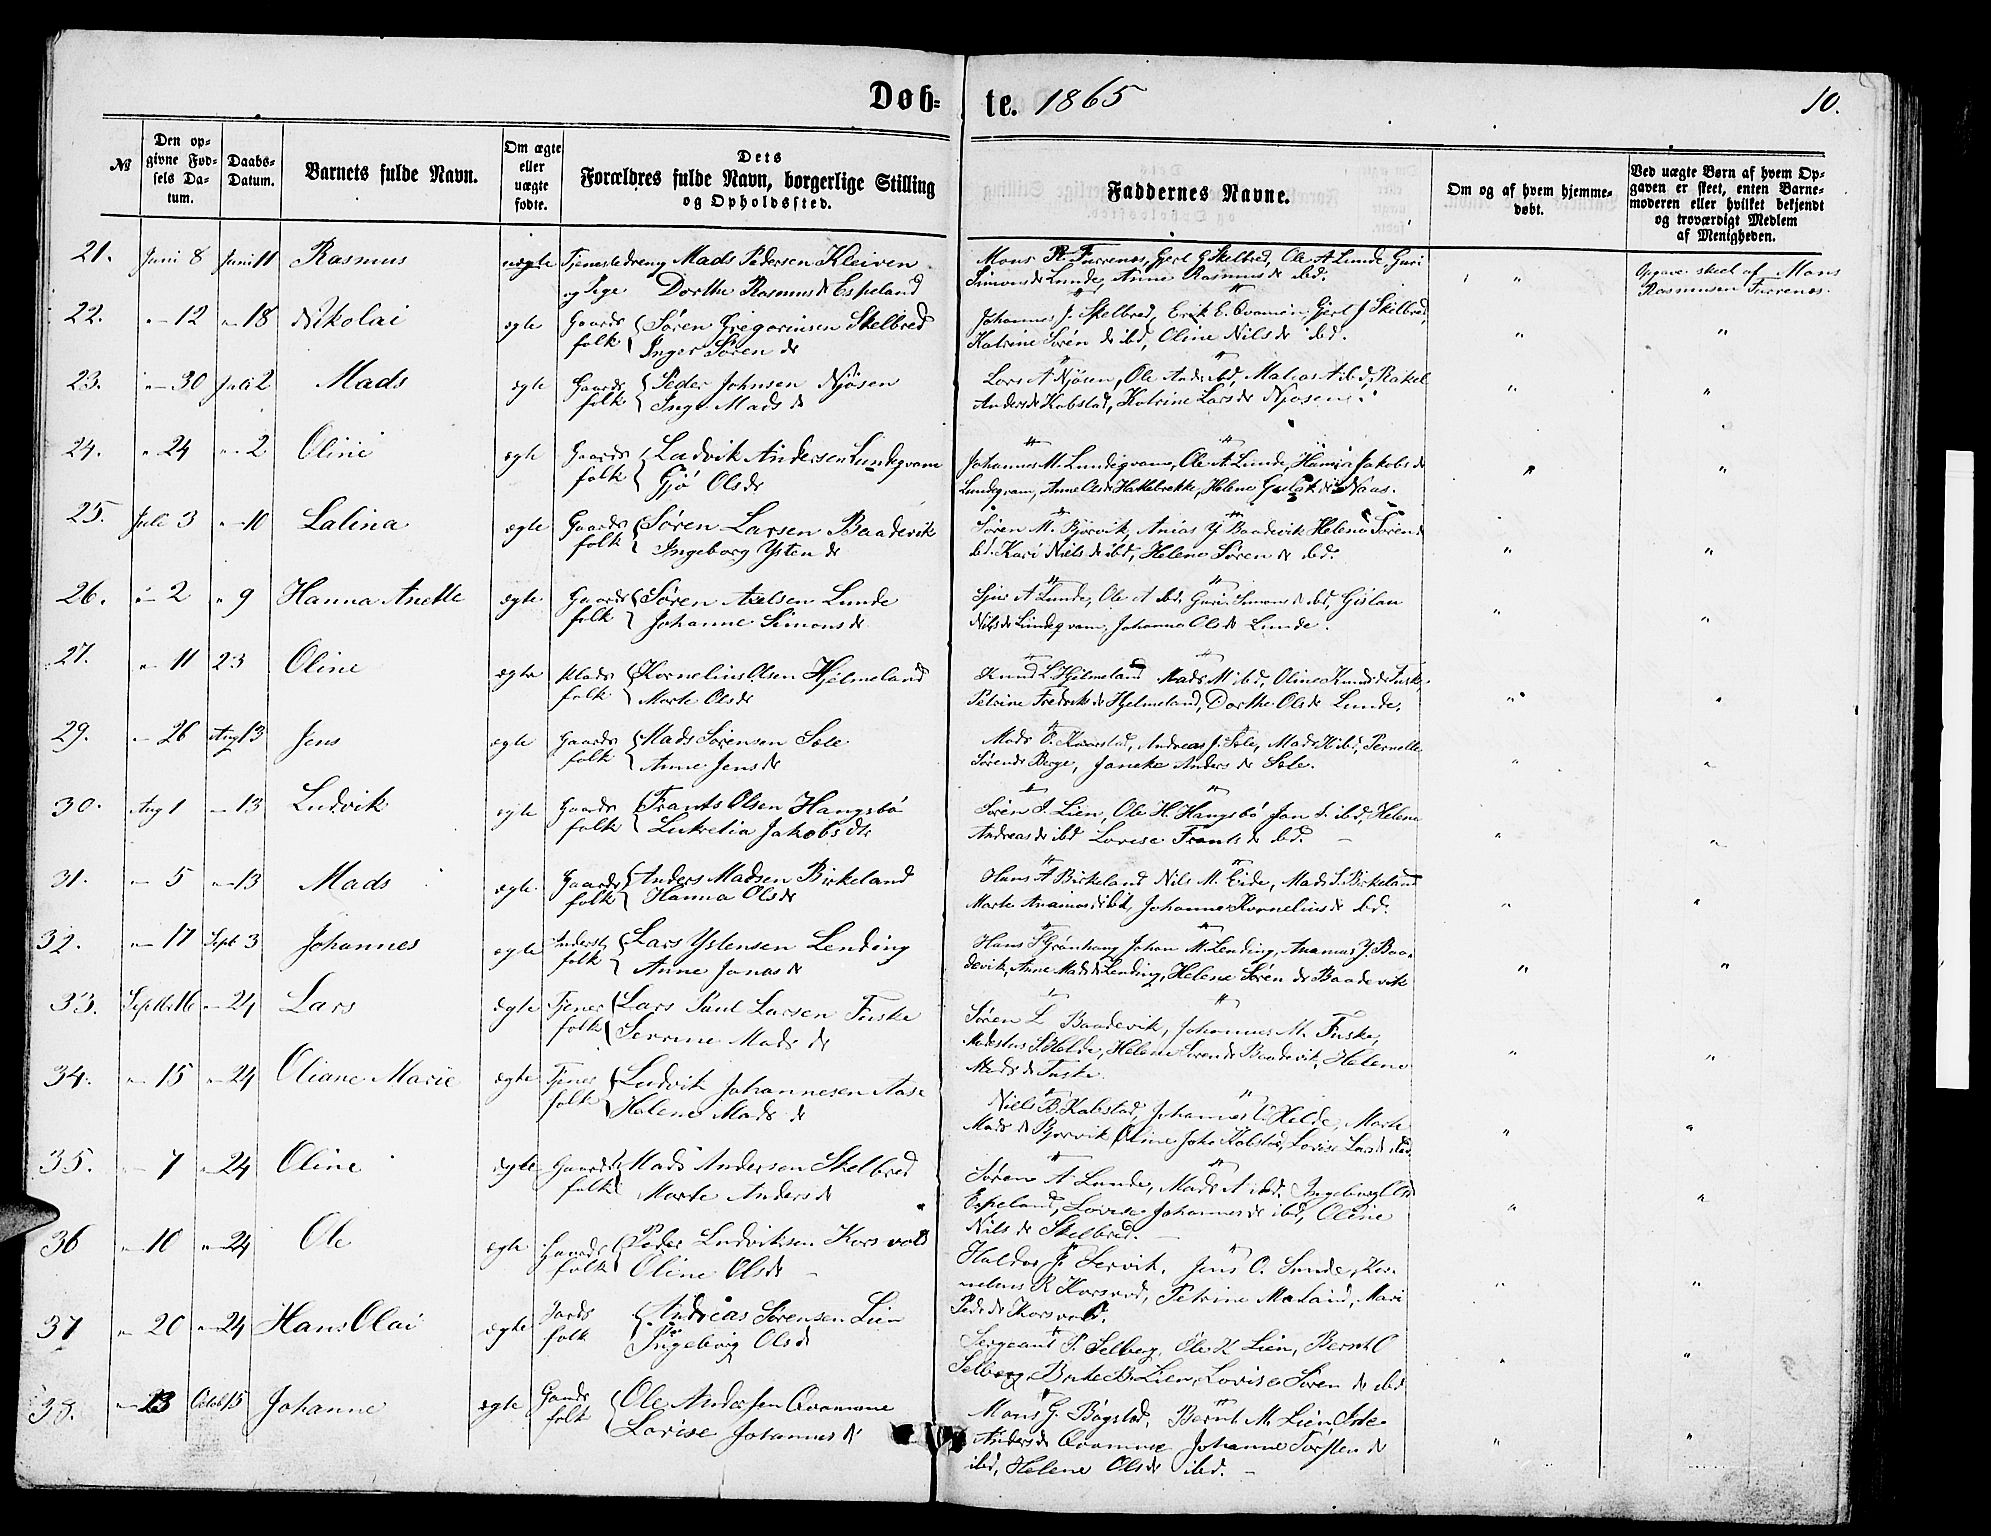 Døb-te. 1865
10.
№
Den opgivne Fødsels Datum.
Daabs-Datum.
Barnets fulde Navn.
Om ægte eller uægte fødte.
Dets Forældres fulde Navn, borgerlige Stilling og Opholdssted.
Faddernes Navne.
Om og af hvem hjemmedøbt.
Ved uægte Børn af hvem Opgaven er skeet, enten Barnemoderen eller hvilket bekjendt og troværdigt Medlem af Menigheden.
21. Juni 8 Juni 11 Rasmus uægte Tjenestedreng Mads Pedersen Kleiven
og Pige Dorthe Rasmusdr Espeland
Mons R Furrenes, Gjert G Skelbred, Ole A Lunde, Guri
Simonsdr Lunde, Anne Rasmusdr ibd.
Opgave skeet af Mons
Rasmussen Furrenes.
22. " 12 " 18 Nikolai ægte Gaardfolk Søren Gregoriusen Skelbred
Inger Sørendr
Johannes J. Skelbred, Erik E. Qvamen, Gjert J Skelbred,
Katrine Sørendr ibd, Oline Nilsdr ibd.
23. " 30 Juli 2 Mads ægte Gaardfolk Peder Johnsen Njøsen
Inge Madsdr
Lars A Njøsen, Ole Anders ibd, Matias A ibd, Rakel
Andersdr Kobstad, Katrine Larsdr Njøsen
24. " 24 " 2 Oline ægte Gaardfolk Ladvik Andersen Lundeqvam
Gjø Olsdr
Johannes M. Lundeqvam, Ole A Lunde, Jakobsdr
Lundeqvam, Anne Olsdr Hatlebrekke, Helene
25. Juli 3 " 10 Lalina ægte Gaardfolk Søren Larsen Baadevik
Ingeborg Ystendr
Søren M. Bjørvik, Anias Y Baadevik Helene Sørendr
ibd. Kari Nilsdr ibd, Helene Sørendr ibd.
26. " 2 " 9 Hanna Anette ægte Gaardfolk Søren Axelsen Lunde
Johanne Simonsdr
Sjur A Lunde, Ole A ibd, Guri Simonsdr ibd, Gislau
Nilsdr Lundeqvam, Johanna Olsdr Lunde.
27. " 11 23 Oline ægte Pladsfolk Kornelius Olsen Hjelmeland
Marte Olsdr
Knud L Hjelmeland Mads M ibd, Oline Knudsdr Tuske,
Petrine Fredriksdr Hjelmeland, Dorthe Olsdr Lunde.
29. " 26 Aug 13 Jens ægte Gaardfolk Mads Sørensen Sole
Anne Jensdr
Mads Kvarstad, Andreas J. Sole, Mads K ibd, Pernelle
Sørensdr Berge, Janeke Andersdr Sole.
30. Aug 1 " 13 Ludvik ægte Gaardfolk Frants Olsen Hangsbø
Lukretia Jakobsdtr
Søren J. Lien, Ole H. Hangsbø Jan S. ibd, Helene
Andreasdr ibd Lovise Frantsdr ibd.
31. " 5 " 13 Mads ægte Gaardfolk Anders Madsen Birkeland
Hanna Olsdr
Hans A Birkeland Nils M. Eide, Mads S. Birkeland
Marte Anamasdr ibd, Johanne Korneliusdr ibd.
32. " 17 Sept 3 Johannes ægte Inderstfolk Lars Ystensen Lending
Anne Jonasdr
Hans S Grønhaug Johan M. Lending, Anamas Y. Baadevik,
Anne Madsdr Lending, Helene Sørendr Baadevik
33. Septbr 16 " 24 Lars ægte Tjenerfolk Lars Paul Larsen Tuske
Serrine Madsdr
Søren L Baadevik, Johannes M. Tuske,
Modestus S. Helde, Helene Sørendr Baadevik, Helene
Madsdr Tuske.
34. " 15 " 24 Oliane Marie ægte Tjenerfolk Ludvik Johannesen Aase
Helene Madsdr
Niels B. Kalstad, Johannes Helde, Marte
Madsdr Bjørvik Oline Kalstad, Lovise Larsdr ibd.
35. " 7 " 24 Oline ægte Gaardfolk Mads Andersen Skelbred
Marte Andersdr
Søren A Lunde, Mads A ibd. Ingeborg Olsdr
Espeland, Lovise Johannesdr ibd, Oline
Nilsdr Skelbred.
36 " 10 " 24 Ole ægte Gaardfolk Peder Ludviksen Korsvold
Oline Olsdr
Haldor J. Servik, Jens O. Sunde, Kornelius
R Korsvold, Petrine Mari
Pedersdr Korsvold.
37 " 20 " 24 Hans Olai ægte Gardsfolk Andreas Sørensen Lien
Ingeborg Olsdr
Sergeant P. Solberg, Ole K Lien, Bernt O
Solberg, Birte B. Lien, Lovise Sørendr ibd
38. " 13 Octob 15 Johanne ægte Gaardsfolk Ole Andersen Qvamme
Lovise Johannesdr
Mons G. Bøgstad, Bernt M. Lien,
Andersdr Qvamme Johanne Torstendr
ibd, Helene Olsdr ibd.